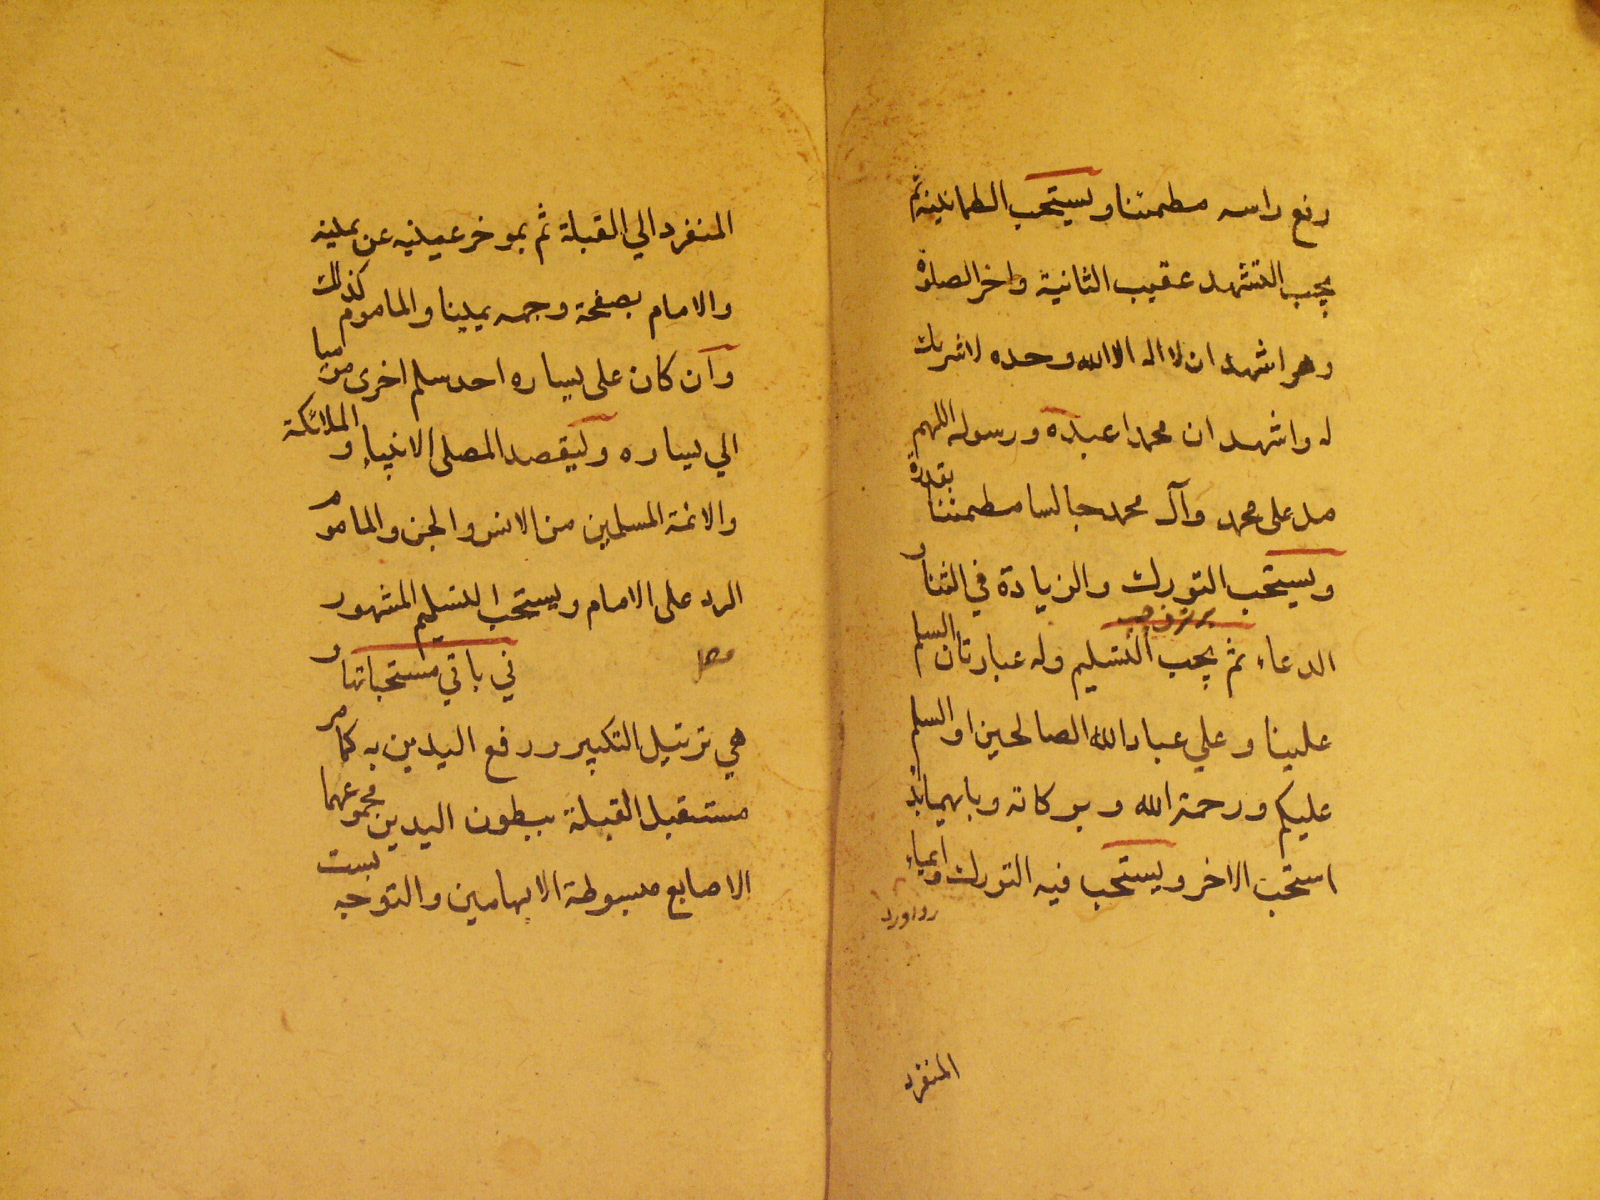 رفع راسه مطمئنا ويستحب الطمانينة ثم
يجب التشهد عقيب الثانية واخر الصلوة
وهو اشهد ان لا اله الا الله وحده لا شريك
له واشهد ان محمدا عبده ورسوله اللهم
صل على محمد وآل محمد جالسا مطمئنا بقدره
ويستحب التورك والزيادة في الثنا و
الدعاء ثم يجب التسليم وله عبارتان السلم
علينا وعلي عباد الله الصالحين او السلم
عليكم ورحمة الله وبركاته وبايهما بدا
استحب الاخر ويستحب فيه التورك وايماء
المنفرد
المنفرد الي القبلة ثم بموخر عينيه عن يمينه
والامام بصفحة وجهه يمينا والماموم كذلك
وان كان على يساره احد سلم اخرى موميا
الي يساره وليقصد المصلى الانبياء والملائكة
والائمة المسلمين من الانس والجن والماموم
الرد على الامام ويستحب التسليم المشهور
فصل في باقي مستحباتها و
هي ترتيل التكبير ورفع اليدين به كما مر
مستقبل القبلة ببطون اليدين مجموعهما
الاصابع مبسوطة الابهامين والتوجه بست